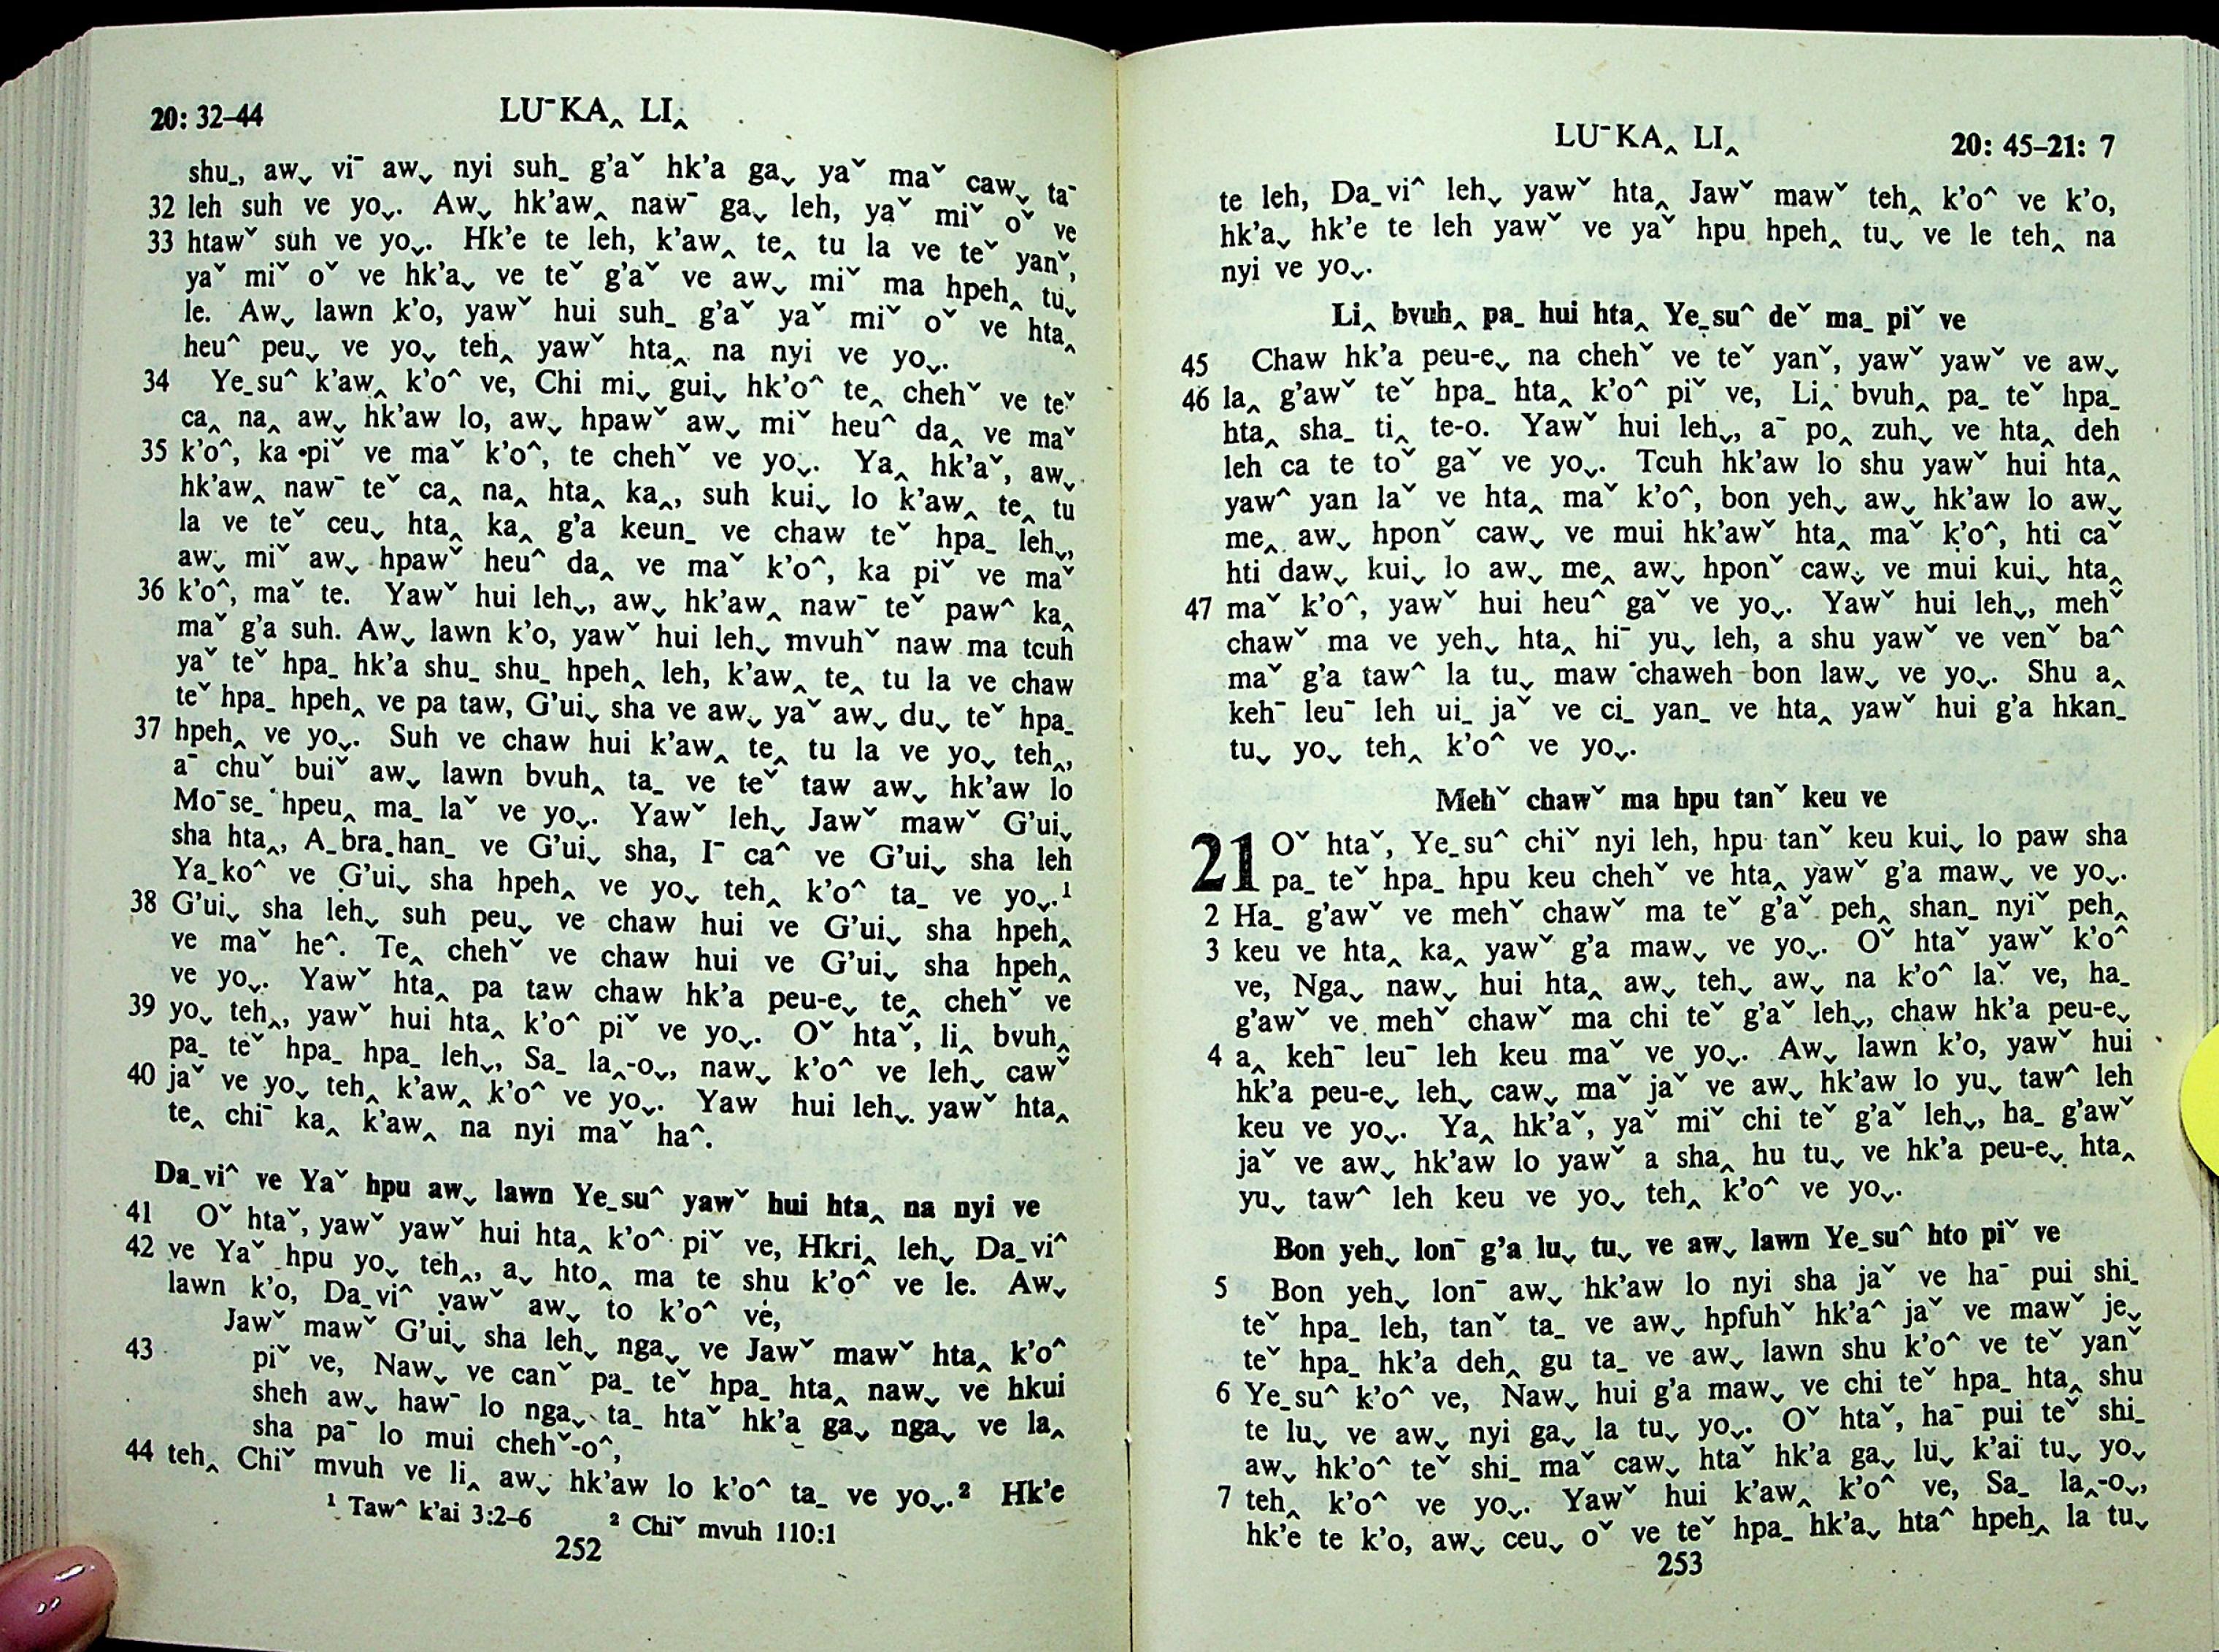 20: 32–44
LUˉKA‸ LI‸
shu_, aw˯ viˉ aw˯ nyi suh_ g’aˇ hk’a ga˯ yaˇ maˇ caw˯ taˉ
32 leh suh ve yo˯. Aw˯ hk’aw‸ nawˉ ga˯ leh, yaˇ miˇ oˇ ve
33 htawˇ suh ve yo˯. Hk’e te leh, k’aw‸ te‸ tu la ve teˇ yanˇ,
yaˇ miˇ oˇ ve hk’a˯ ve teˇ g’aˇ ve aw˯ miˇ ma hpeh‸ tu˯
le. Aw˯ lawn k’o, yawˇ hui suh_ g’aˇ yaˇ miˇ oˇ ve hta‸
heu^ peu˯ ve yo˯ teh‸ yawˇ hta‸ na nyi ve yo˯.
34 Ye_su^ k’aw‸ k’o^ ve, Chi mi˯ gui˯ hk’o^ te‸ chehˇ ve teˇ
ca‸ na‸ aw˯ hk’aw lo, aw˯ hpawˇ aw˯ miˇ heu^ da‸ ve maˇ
35 k’o^, ka piˇ ve maˇ k’o^, te chehˇ ve yo˯. Ya‸ hk’aˇ, aw˯
hk’aw‸ nawˉ teˇ ca‸ na‸ hta‸ ka‸, suh kui˯ lo k’aw‸ te‸ tu
la ve teˇ ceu˯ hta‸ ka‸ g’a keun_ ve chaw teˇ hpa_ leh˯,
aw˯ miˇ aw˯ hpawˇ heu^ da‸ ve maˇ k’o^, ka piˇ ve maˇ
36 k’o^, maˇ te. Yawˇ hui leh˯, aw˯ hk’aw‸ nawˉ teˇ paw^ ka‸
maˇ g’a suh. Aw˯ lawn k’o, yawˇ hui leh˯ mvuhˇ naw ma tcuh
yaˇ teˇ hpa_ hk’a shu_ shu_ hpeh‸ leh, k’aw‸ te‸ tu la ve chaw
teˇ hpa_ hpeh‸ ve pa taw, G’ui˯ sha ve aw˯ yaˇ aw˯ du˯ teˇ hpa_
37 hpeh‸ ve yo˯. Suh ve chaw hui k’aw‸ te‸ tu la ve yo˯ teh‸,
aˉ chuˇ buiˇ aw˯ lawn bvuh‸ ta_ ve teˇ taw aw˯ hk’aw lo
Moˉse_ hpeu‸ ma_ laˇ ve yo˯. Yawˇ leh˯ Jawˇ mawˇ G’ui˯
sha hta‸, A_bra_han_ ve G’ui˯ sha, Iˉ ca^ ve G’ui˯ sha leh
Ya_ko^ ve G’ui˯ sha hpeh‸ ve yo˯ teh‸ k’o^ ta_ ve yo˯.¹
38 G’ui˯ sha leh˯ suh peu˯ ve chaw hui ve G’ui˯ sha hpeh‸
ve maˇ he^. Te‸ chehˇ ve chaw hui ve G’ui˯ sha hpeh‸
ve yo˯. Yawˇ hta‸ pa taw chaw hk’a peu-e˯ te‸ chehˇ ve
39 yo˯ teh‸, yawˇ hui hta‸ k’o^ piˇ ve yo˯. Oˇ htaˇ, li‸ bvuh‸
pa_ teˇ hpa_ hpa_ leh˯, Sa_ la‸-o˯, naw˯ k’o^ ve leh˯ cawˇ
40 jaˇ ve yo˯ teh‸ k’aw‸ k’o^ ve yo˯. Yaw hui leh˯ yawˇ hta‸
te‸ chiˉ ka‸ k’aw‸ na nyi maˇ ha^.
Da_vi^ ve Yaˇ hpu aw˯ lawn Ye_su^ yawˇ hui hta‸ na nyi ve
41 Oˇ htaˇ, yawˇ yawˇ hui hta‸ k’o^ piˇ ve, Hkri‸ leh˯ Da_vi^
42 ve Yaˇ hpu yo˯ teh‸, a˯ hto‸ ma te shu k’o^ ve le. Aw˯
lawn k’o, Da_vi^ yawˇ aw˯ to k’o^ ve,
Jawˇ mawˇ G’ui˯ sha leh˯ nga˯ ve Jawˇ mawˇ hta‸ k’o^
43 piˇ ve, Naw˯ ve canˇ pa_ teˇ hpa_ hta‸ naw˯ ve hkui
sheh aw˯ hawˉ lo nga˯ ta_ htaˇ hk’a ga˯ nga˯ ve la‸
sha paˉ lo mui chehˇ-o^,
44 teh‸ Chiˇ mvuh ve li‸ aw˯ hk’aw lo k’o^ ta_ ve yo˯.² Hk’e
¹ Taw^ k’ai 3:2–6 ² Chiˇ mvuh 110:1
252
LUˉKA‸ LI‸
20: 45–21: 7
te leh, Da_vi^ leh˯ yawˇ hta‸ Jawˇ mawˇ teh‸ k’o^ ve k’o,
hk’a˯ hk’e te leh yawˇ ve yaˇ hpu hpeh‸ tu˯ ve le teh‸ na
nyi ve yo˯.
Li‸ bvuh‸ pa_ hui hta‸ Ye_su^ deˇ ma_ piˇ ve
45 Chaw hk’a peu-e˯ na chehˇ ve teˇ yanˇ, yawˇ yawˇ ve aw˯
46 la‸ g’awˇ teˇ hpa_ hta‸ k’o^ piˇ ve, Li‸ bvuh‸ pa_ teˇ hpa_
hta‸ sha_ ti‸ te-o. Yawˇ hui leh˯, aˉ po‸ zuh˯ ve hta‸ deh
leh ca te toˇ gaˇ ve yo˯. Tcuh hk’aw lo shu yawˇ hui hta‸
yaw^ yan laˇ ve hta‸ maˇ k’o^, bon yeh˯ aw˯ hk’aw lo aw˯
me‸ aw˯ hponˇ caw˯ ve mui hk’awˇ hta‸ maˇ k’o^, hti caˇ
hti daw˯ kui˯ lo aw˯ me‸ aw˯ hponˇ caw˯ ve mui kui˯ hta‸
47 maˇ k’o^, yawˇ hui heu^ gaˇ ve yo˯. Yawˇ hui leh˯, mehˇ
chawˇ ma ve yeh˯ hta‸ hiˉ yu˯ leh, a shu yawˇ ve venˇ ba^
maˇ g’a taw^ la tu˯ maw chaweh bon law˯ ve yo˯. Shu a‸
kehˉ leuˉ leh ui_ jaˇ ve ci_ yan_ ve hta‸ yawˇ hui g’a hkan_
tu˯ yo˯ teh‸ k’o^ ve yo˯.
Mehˇ chawˇ ma hpu tanˇ keu ve
21 Oˇ htaˇ, Ye_su^ chiˇ nyi leh, hpu tanˇ keu kui˯ lo paw sha
pa_ teˇ hpa_ hpu keu chehˇ ve hta‸ yawˇ g’a maw˯ ve yo˯.
2 Ha_ g’awˇ ve mehˇ chawˇ ma teˇ g’aˇ peh‸ shan_ nyiˇ peh‸
3 keu ve hta‸ ka‸ yawˇ g’a maw˯ ve yo˯. Oˇ htaˇ yawˇ k’o^
ve, Nga˯ naw˯ hui hta‸ aw˯ teh˯ aw˯ na k’o^ laˇ ve, ha_
g’awˇ ve mehˇ chawˇ ma chi teˇ g’aˇ leh˯, chaw hk’a peu-e˯
4 a‸ kehˉ leuˉ leh keu maˇ ve yo˯. Aw˯ lawn k’o, yawˇ hui
hk’a peu-e˯ leh˯ caw˯ maˇ jaˇ ve aw˯ hk’aw lo yu˯ taw^ leh
keu ve yo˯. Ya‸ hk’aˇ, yaˇ miˇ chi teˇ g’aˇ leh˯, ha_ g’awˇ
jaˇ ve aw˯ hk’aw lo yawˇ a sha‸ hu tu˯ ve hk’a peu-e˯ hta‸
yu˯ taw^ leh keu ve yo˯ teh‸ k’o^ ve yo˯.
Bon yeh˯ lonˉ g’a lu˯ tu˯ ve aw˯ lawn Ye_su^ hto piˇ ve
5 Bon yeh˯ lonˉ aw˯ hk’aw lo nyi sha jaˇ ve haˉ pui shi_
teˇ hpa_ leh, tanˇ ta_ ve aw˯ hpfuhˇ hk’a^ jaˇ ve mawˇ je˯
teˇ hpa_ hk’a deh‸ gu ta_ ve aw˯ lawn shu k’o^ ve teˇ yanˇ
6 Ye_su^ k’o^ ve, Naw˯ hui g’a maw˯ ve chi teˇ hpa_ hta‸ shu
te lu˯ ve aw˯ nyi ga˯ la tu˯ yo˯. Oˇ htaˇ, haˉ pui teˇ shi_
aw˯ hk’o^ teˇ shi_ maˇ caw˯ htaˇ hk’a ga˯ lu˯ k’ai tu˯ yo˯
7 teh‸ k’o^ ve yo˯. Yawˇ hui k’aw‸ k’o^ ve, Sa_ la‸-o˯,
hk’e te k’o, aw˯ ceu˯ oˇ ve teˇ hpa_ hk’a˯ hta^ hpeh‸ la tu˯
253